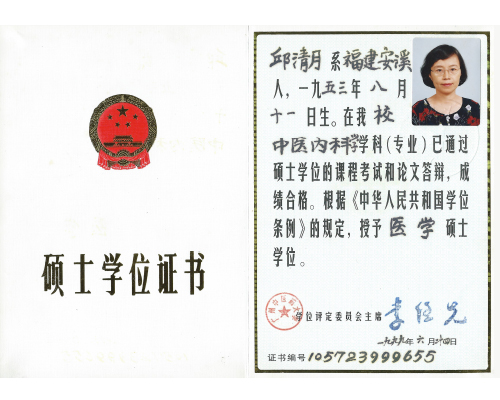 硕士学位证书
邱清月 系福建安溪
人，一九五三年 八 月
十一日生。在我 校
中医内科学学科（专业）已通过
硕士学位的课程考试和论文答辩，成
绩合格。根据《中华人民共和国学位
条例》的规定，授予 医学 硕士
学位。
学位评定委员会主席
一九九九年六月二十四日
证书编号 105723999655